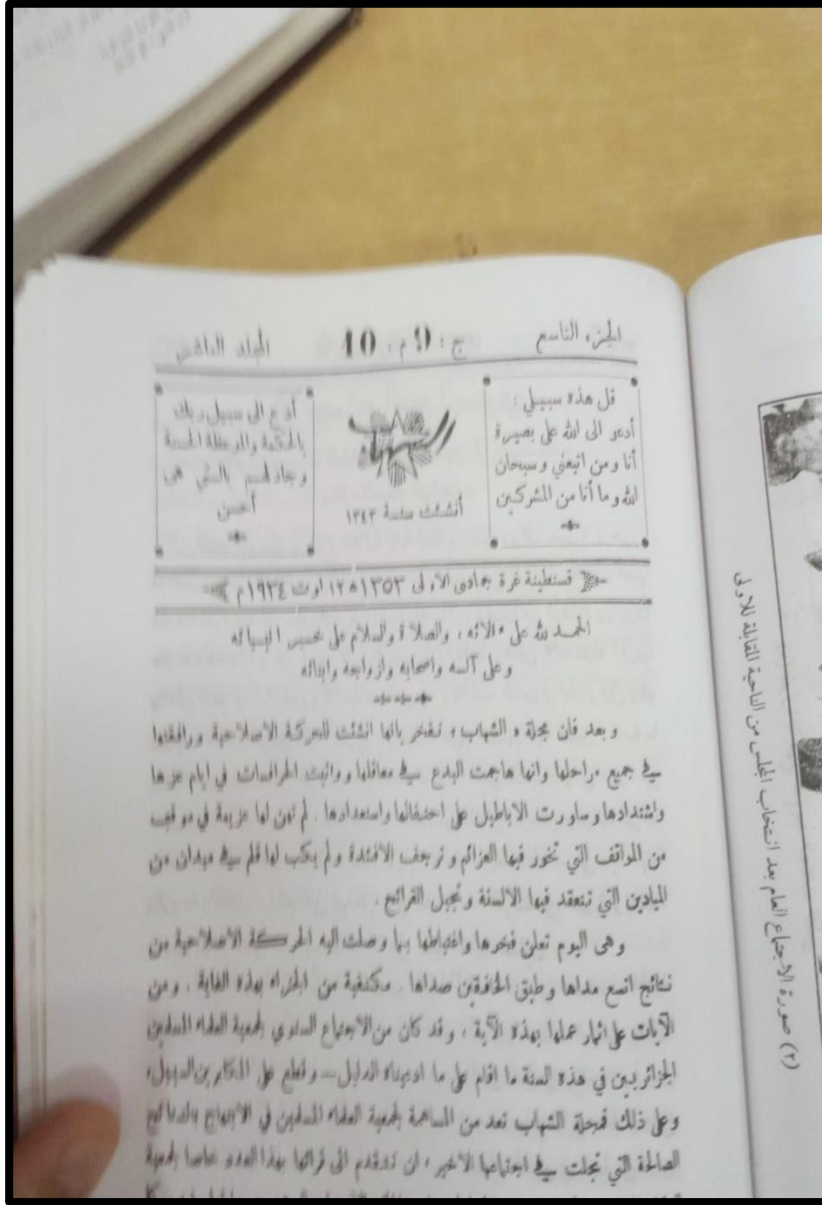 الجزء التاسع ج : 9 م : 10 المجلد العاشر
قل هذه سبيلي :
أدعو الى الله على بصيرة
أنا ومن اتبعني وسبحان
الله وما أنا من المشركين
الشهاب
أنشئت سنة ١٣٤٣
أدع الى سبيل ربك
بالحكمة والموعظة الحسنة
وجادلهم بالتي هي
أحسن
قسنطينة غرة جمادى الأولى ١٣٥٣ ه ١٢ اوت ١٩٣٤ م
الحمد لله على آلائه ، والصلاة والسلام على
وعلى آله واصحابه وازواجه
وبعد فان مجلة « الشهاب » تفخر بانها انشئت للحركة الاصلاحية ورافقتها
في جميع مراحلها وانها هاجمت البدع في معاقلها وواثبت الخرافات في ايام عزها
واشتدادها وساورت الاباطيل على احتفالها واستعدادها . لم تهن لها عزيمة في موقف
من المواقف التي تخور فيها العزائم وترجف الافئدة ولم يكب لها قلم في ميدان من
الميادين التي تنعقد فيها الالسنة وتجبل القرائح .
وهي اليوم تعلن فخرها واغتباطها بما وصلت اليه الحركة الاصلاحية من
نتائج اتسع مداها وطبق الخافقين صداها . مكتفية من الجزاء بهذه الغاية ، ومن
الآيات على اثمار عملها بهذه الآية ، وقد كان من الاجتماع السنوي لجمعية العلماء المسلمين
الجزائريين في هذه السنة ما اقام على ما ادعيناه الدليل — وقطع على المكابرين السبيل ،
وعلى ذلك فمجلة الشهاب تعد من المساهمة لجمعية العلماء المسلمين في الابتهاج بالنتائج
الصالحة التي تجلت في اجتماعها الاخير ، ان تتقدم الى قرائها بهذا العدد خاصا بجمعية
(٢) صورة الاجتماع العام بعد انتخاب المجلس من الناحية المقابلة للاولى